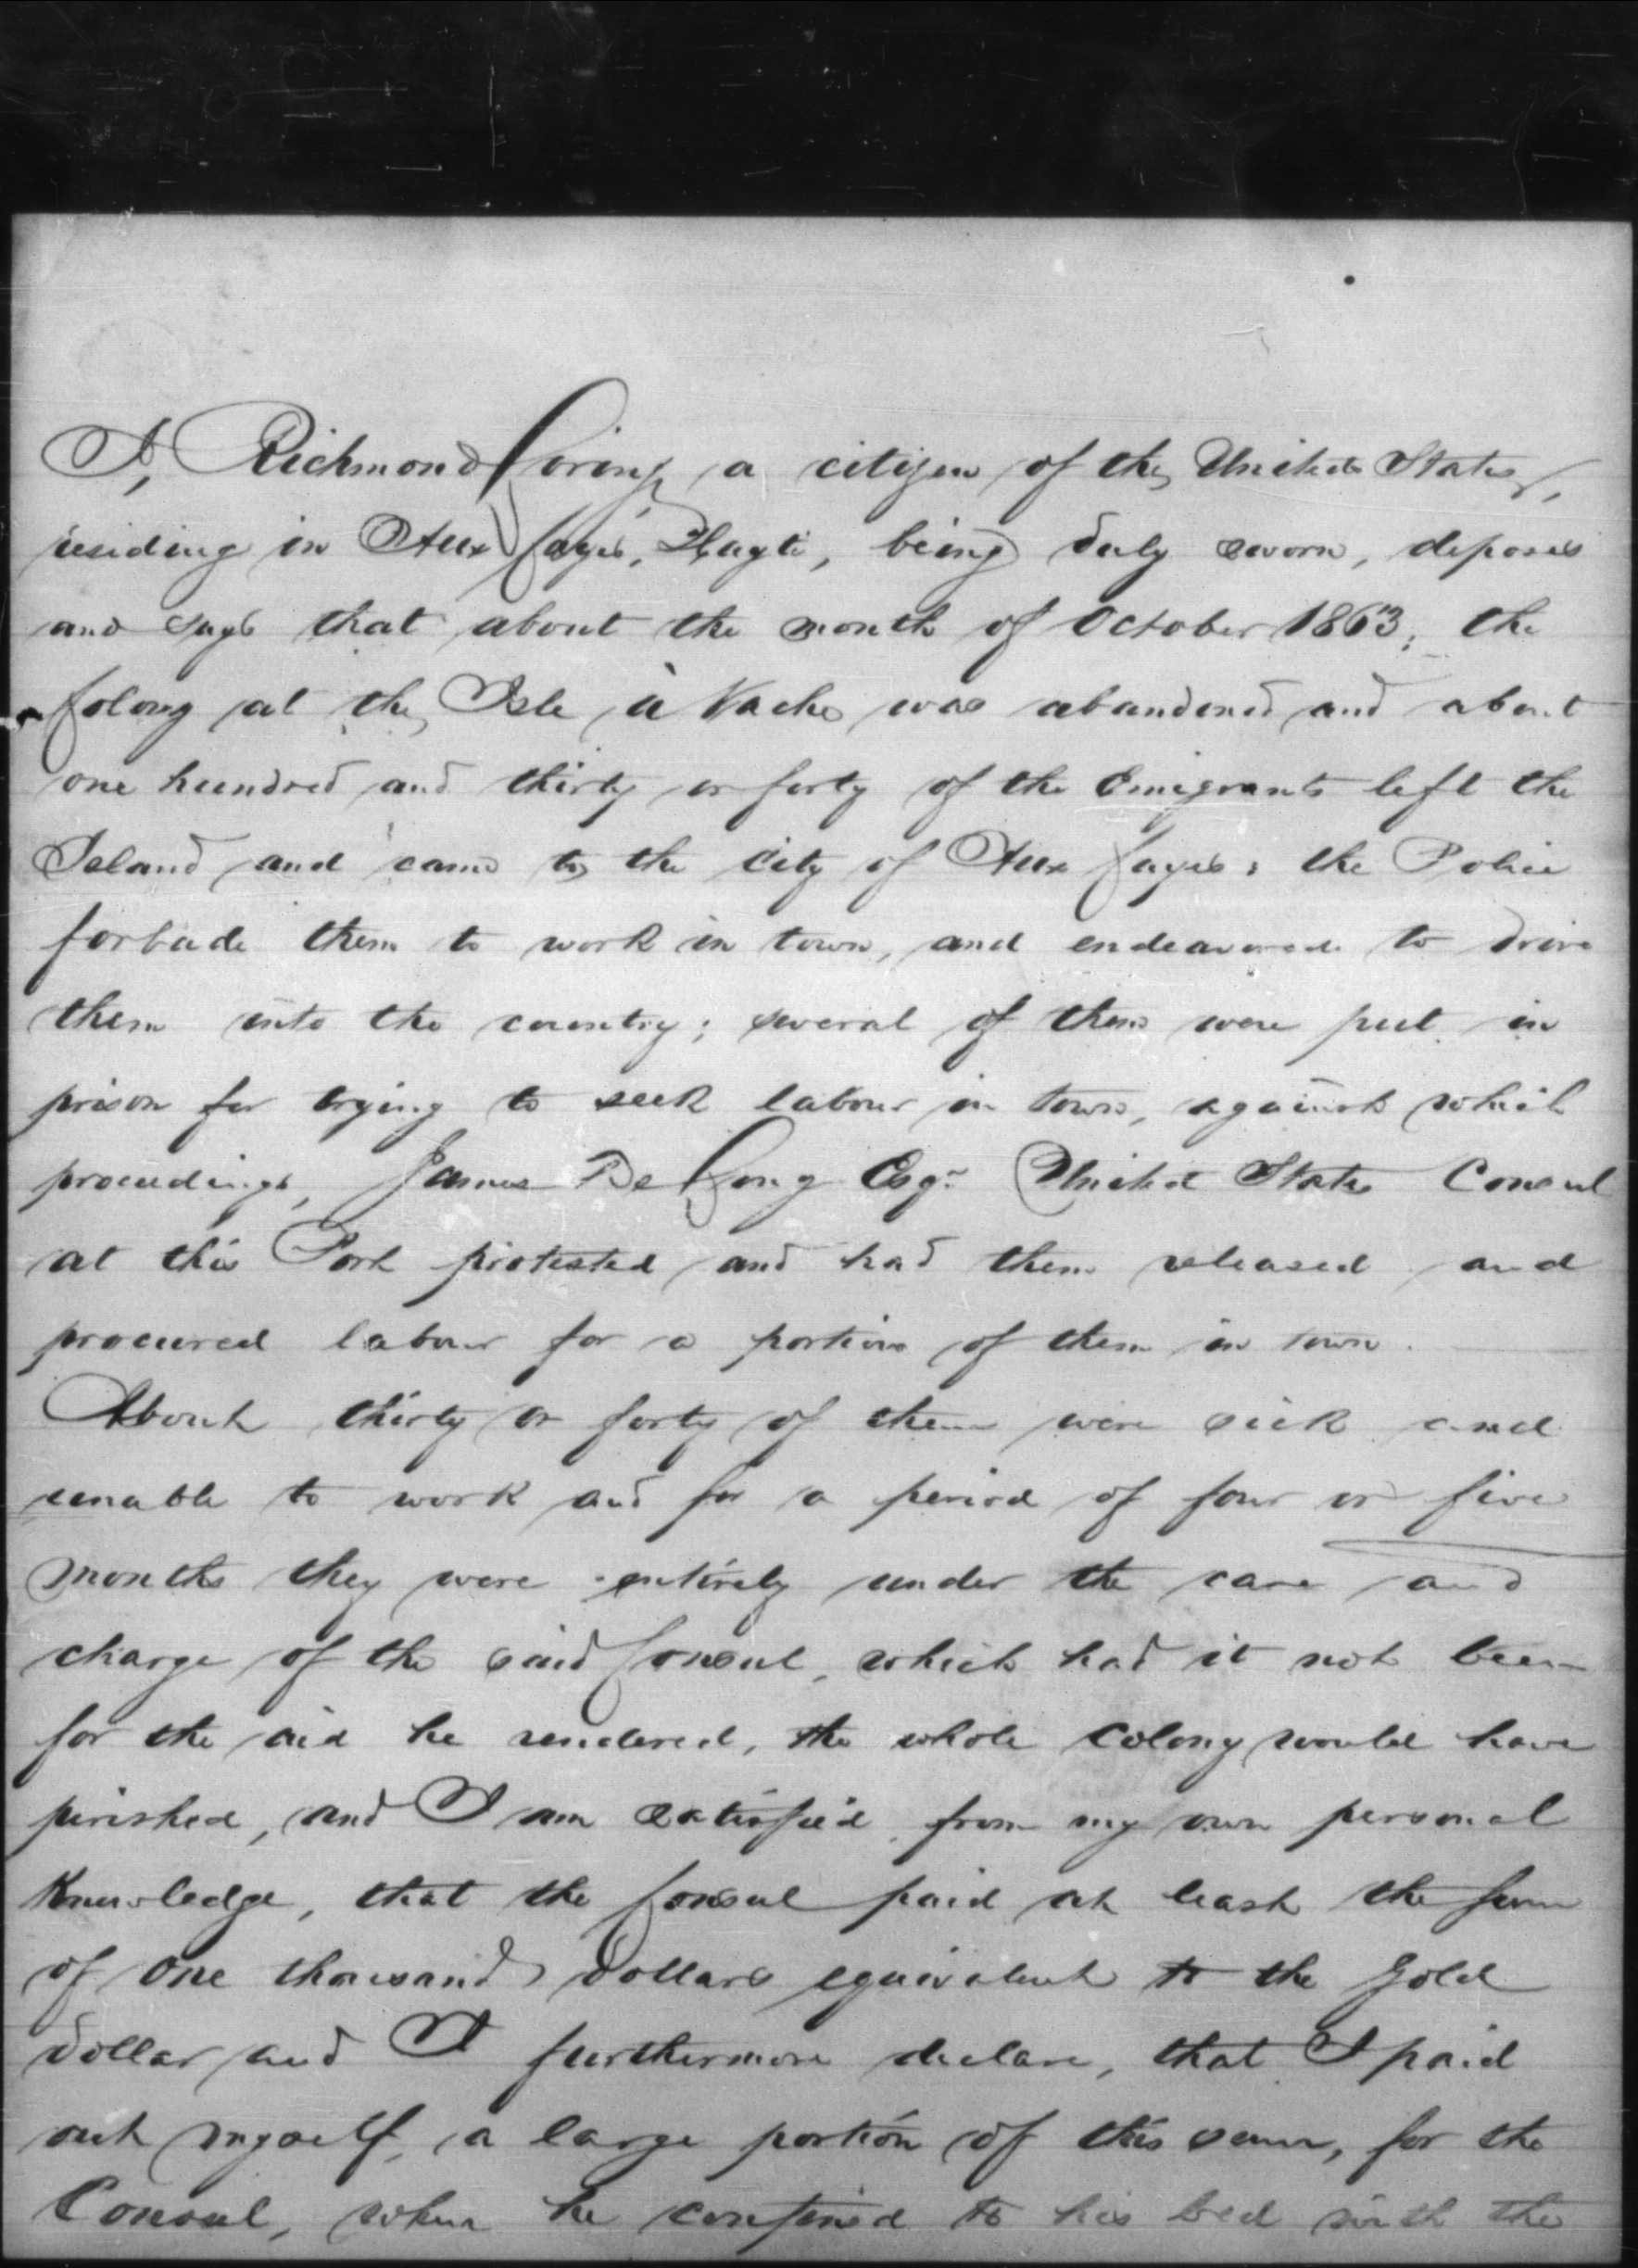 I, Richmond Loring, a citizen of the United States,
residing in Aux Cayes, Hayti, being duly sworn, deposes
and says that about the month of October 1863, the
Colony at the Isle à Vache was abandoned and about
one hundred and thirty or forty of the Emigrants left the
Island and came to the City of Aux Cayes; the Police
forbade them to work in town, and endeavored to drive
them into the country; several of them were put in
prison for trying to seek labour in town, against which
proceedings, James De Long Esqr United States Consul
at this Port protested and had them released and
procured labour for a portion of them in town.
About thirty or forty of them were sick and
unable to work and for a period of four or five
months they were entirely under the care and
charge of the said Consul, which had it not been
for the aid he rendered, the whole Colony would have
perished, and I am satisfied from my own personal
Knowledge, that the Consul paid at least the sum
of One thousand Dollars equivalent to the Gold
Dollar and I furthermore declare, that I paid
out myself, a large portion of this sum, for the
Consul, when he confined to his bed with the